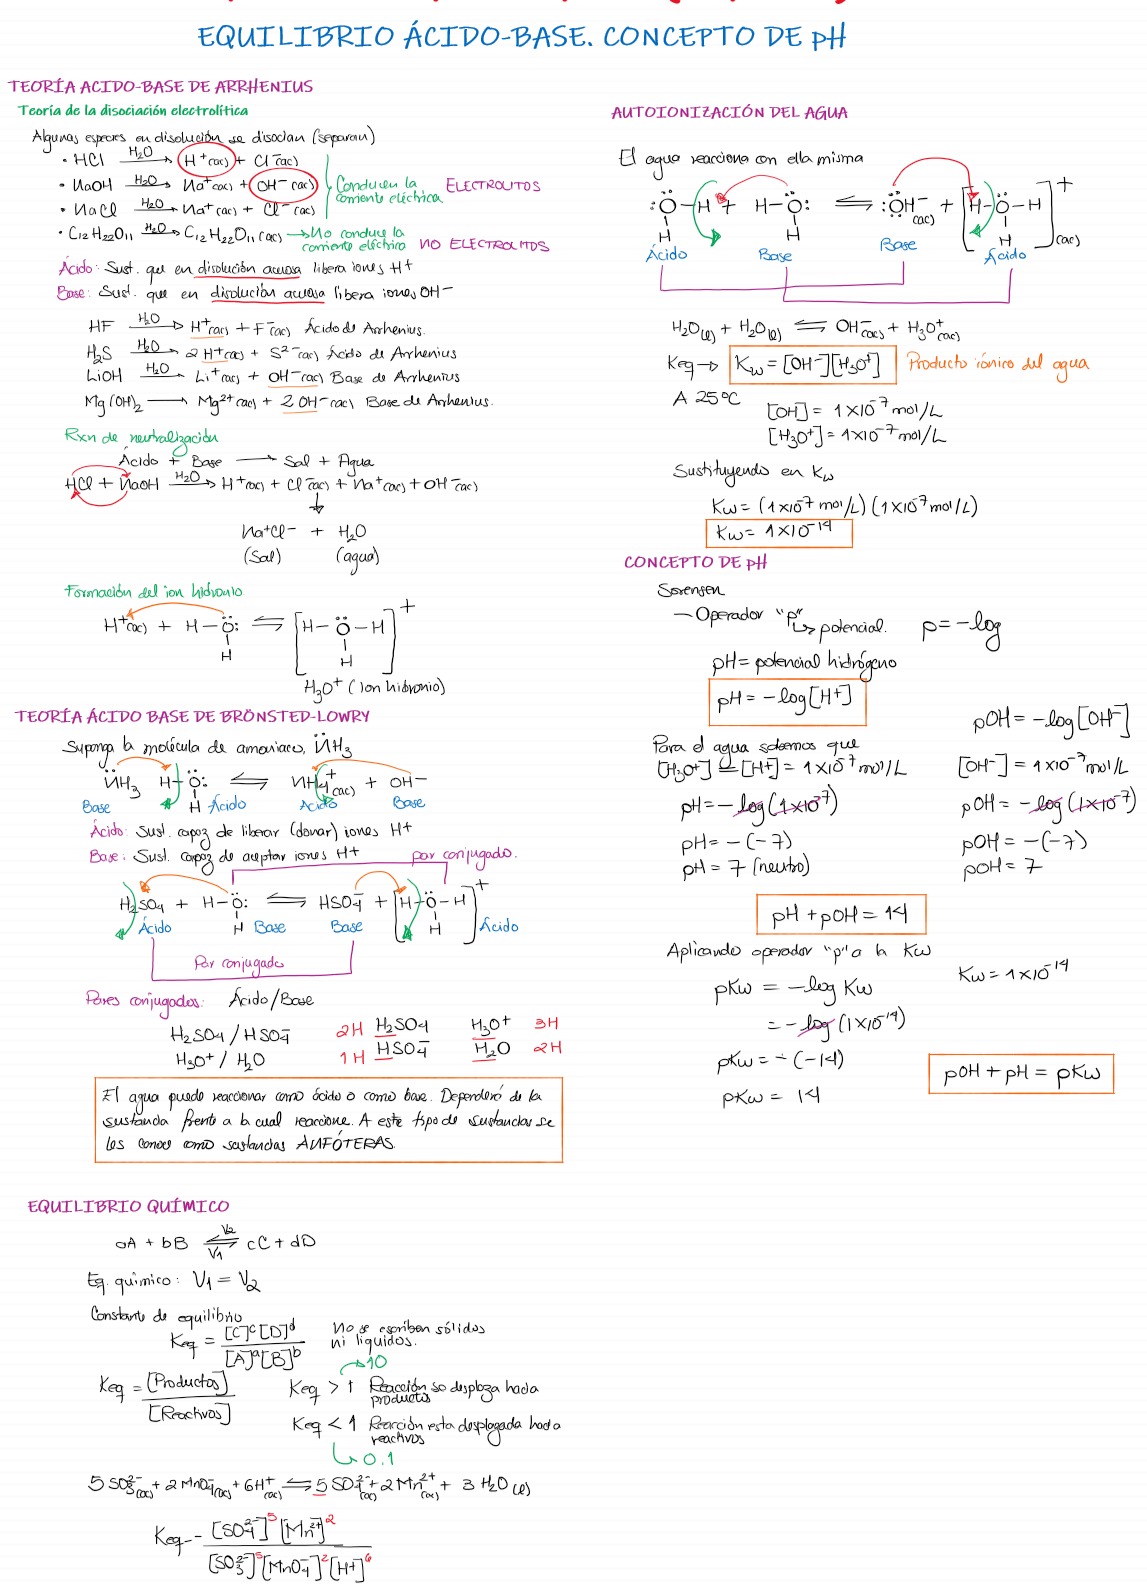 EQUILIBRIO ÁCIDO-BASE. CONCEPTO DE pH
TEORÍA ACIDO-BASE DE ARRHENIUS
Teoría de la disociación electrolítica
Algunas especies en disolución se disocian (separan)
• HCl H₂O→ H⁺(ac) + Cl⁻(ac)
• NaOH H₂O→ Na⁺(ac) + OH⁻(ac)
• NaCl H₂O→ Na⁺(ac) + Cl⁻(ac)
Conducen la corriente eléctrica ELECTROLITOS
• C₁₂H₂₂O₁₁ H₂O→ C₁₂H₂₂O₁₁(ac) → No conduce la corriente eléctrica NO ELECTROLITOS
Ácido: Sust. que en disolución acuosa libera iones H⁺
Base: Sust. que en disolución acuosa libera iones OH⁻
HF H₂O→ H⁺(ac) + F⁻(ac) Ácido de Arrhenius.
H₂S H₂O→ 2H⁺(ac) + S²⁻(ac) Ácido de Arrhenius
LiOH H₂O→ Li⁺(ac) + OH⁻(ac) Base de Arrhenius
Mg(OH)₂ → Mg²⁺(ac) + 2OH⁻(ac) Base de Arrhenius.
Rxn de neutralización
Ácido + Base → Sal + Agua
HCl + NaOH H₂O→ H⁺(ac) + Cl⁻(ac) + Na⁺(ac) + OH⁻(ac)
↓
Na⁺Cl⁻ + H₂O
(Sal) (agua)
Formación del ion hidronio
H⁺(ac) + H–O: ⇌ [H–O–H]⁺
H H
H₃O⁺ (Ion hidronio)
TEORÍA ÁCIDO BASE DE BRÖNSTED-LOWRY
Suponga la molécula de amoniaco, NH₃
NH₃ H–O: ⇌ NH₄⁺(ac) + OH⁻
Base H Ácido Acido Base
Ácido: Sust. capaz de liberar (donar) iones H⁺
Base: Sust. capaz de aceptar iones H⁺
par conjugado.
H₂SO₄ + H–O: ⇌ HSO₄⁻ + [H–O–H]⁺
Ácido H Base Base H Ácido
Par conjugado
Pares conjugados: Ácido/Base
H₂SO₄ / HSO₄⁻ 2H H₂SO₄ H₃O⁺ 3H
H₃O⁺ / H₂O 1H HSO₄⁻ H₂O 2H
El agua puede reaccionar como ácido o como base. Dependerá de la
sustancia frente a la cual reaccione. A este tipo de sustancias se
les conoce como sustancias ANFÓTERAS.
EQUILIBRIO QUÍMICO
aA + bB V₂ ⇌ V₁ cC + dD
Eq. químico: V₁ = V₂
Constante de equilibrio
Keq = [C]ᶜ[D]ᵈ / [A]ᵃ[B]ᵇ No se escriben sólidos ni líquidos.
→10
Keq = [Productos] / [Reactivos]
Keq > 1 Reacción se desplaza hacia productos
Keq < 1 Reacción esta desplazada hacia reactivos
↳0.1
5SO₃²⁻(ac) + 2MnO₄⁻(ac) + 6H⁺(ac) ⇌ 5SO₄²⁻(ac) + 2Mn²⁺(ac) + 3H₂O(l)
Keq = [SO₄²⁻]⁵[Mn²⁺]² / [SO₃²⁻]⁵[MnO₄⁻]²[H⁺]⁶
AUTOIONIZACIÓN DEL AGUA
El agua reacciona con ella misma
:O–H + H–O: ⇌ :OH⁻(ac) + [H–O–H]⁺(ac)
H H H
Ácido Base Base Ácido
H₂O(l) + H₂O(l) ⇌ OH⁻(ac) + H₃O⁺(ac)
Keq → Kw = [OH⁻][H₃O⁺] Producto iónico del agua
A 25°C
[OH] = 1x10⁻⁷ mol/L
[H₃O⁺] = 1x10⁻⁷ mol/L
Sustituyendo en Kw
Kw = (1x10⁻⁷ mol/L)(1x10⁻⁷ mol/L)
Kw = 1x10⁻¹⁴
CONCEPTO DE pH
Sorensen
— Operador "p" ↳ potencial. p = -log
pH = potencial hidrógeno
pH = -log[H⁺]
pOH = -log[OH⁻]
Para el agua sabemos que
[H₃O⁺] = [H⁺] = 1x10⁻⁷ mol/L [OH⁻] = 1x10⁻⁷ mol/L
pH = -log(1x10⁻⁷) pOH = -log(1x10⁻⁷)
pH = -(-7) pOH = -(-7)
pH = 7 (neutro) pOH = 7
pH + pOH = 14
Aplicando operador "p" a la Kw
Kw = 1x10⁻¹⁴
pKw = -log Kw
= -log(1x10⁻¹⁴)
pKw = -(-14)
pKw = 14
pOH + pH = pKw